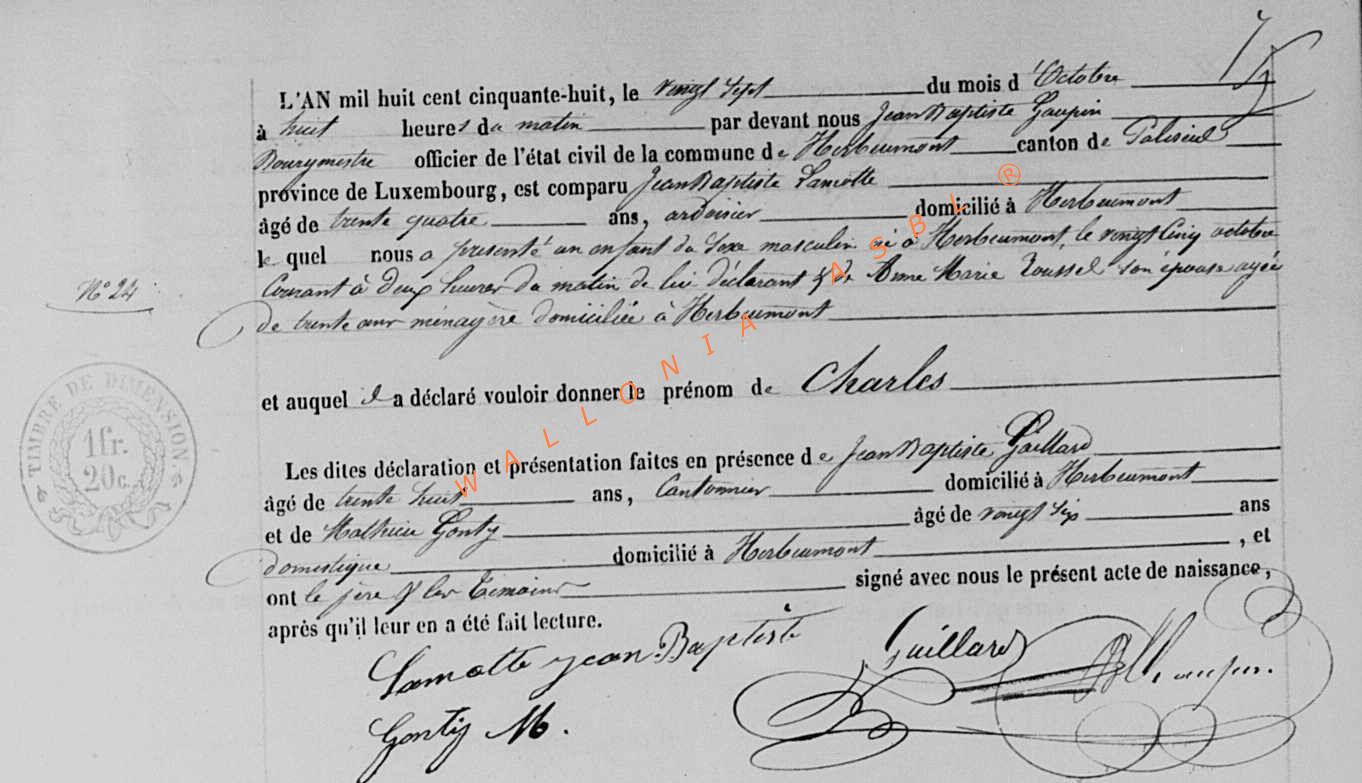 L'AN mil huit cent cinquante-huit, le vingt sept du mois d'Octobre
à huit heures du matin par devant nous Jean Baptiste Gaupin
Bourgmestre officier de l'état civil de la commune de Herbeumont canton de Paliseul
province de Luxembourg, est comparu Jean Baptiste Lamotte
âgé de trente quatre ans, ardoisier domicilié à Herbeumont
le quel nous a présenté un enfant du sexe masculin né à Herbeumont, le vingt cinq octobre
Courant à deux heures du matin de lui déclarant & de Anne Marie Roussel son épouse agée
de trente ans ménagère domiciliée à Herbeumont
N° 24
et auquel il a déclaré vouloir donner le prénom de Charles
TIMBRE DE DIMENSION
1fr.
20c.
Les dites déclaration et présentation faites en présence de Jean Baptiste Gaillard
âgé de trente huit ans, Cantonnier domicilié à Herbeumont
et de Mathieu Gonty âgé de vingt six ans
domestique domicilié à Herbeumont, et
ont le père & les Témoins signé avec nous le présent acte de naissance,
après qu'il leur en a été fait lecture.
Lamotte jean Baptiste Gaillard
Gontij M.
WALLONIA ASBL ®